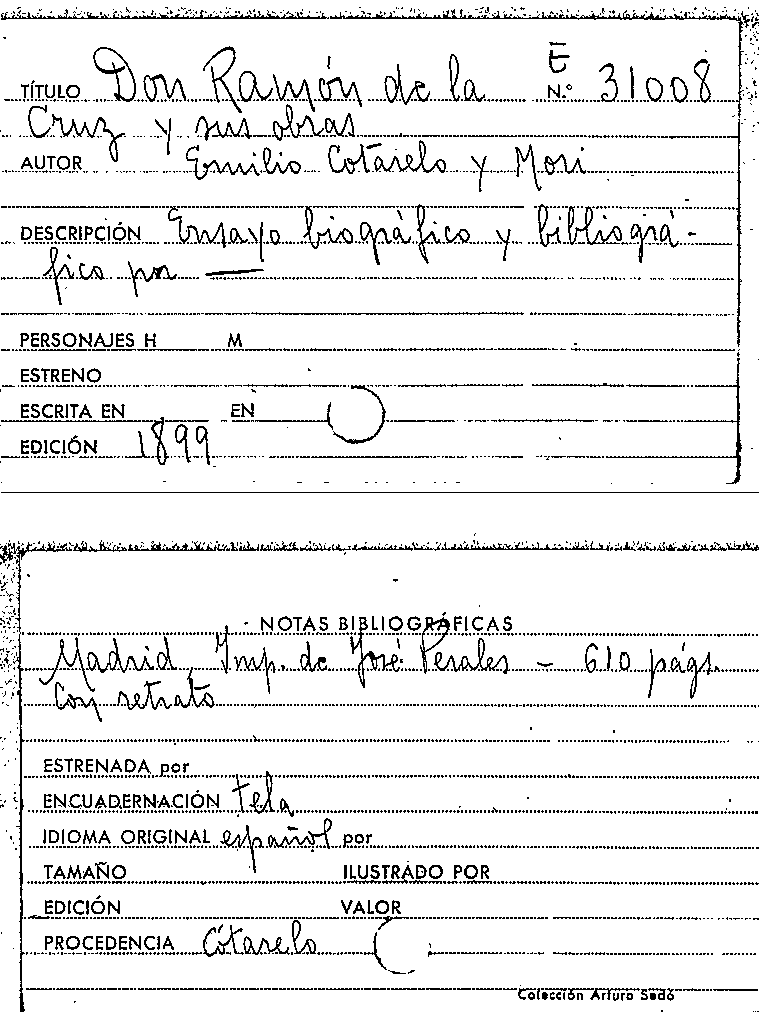 TÍTULO Don Ramón de la E N.º 31008
Cruz y sus obras
AUTOR Emilio Cotarelo y Mori
DESCRIPCIÓN Ensayo biográfico y bibliográ-
fico por —
PERSONAJES H M
ESTRENO
ESCRITA EN EN
EDICIÓN 1899
NOTAS BIBLIOGRÁFICAS
Madrid, Imp. de José Perales - 610 págs.
Con retrato
ESTRENADA por
ENCUADERNACIÓN tela
IDIOMA ORIGINAL español por
TAMAÑO ILUSTRADO POR
EDICIÓN VALOR
PROCEDENCIA Cotarelo
Colección Arturo Sedó